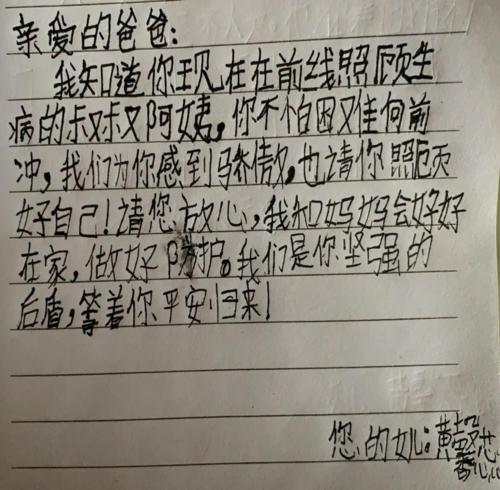 亲爱的爸爸:
我知道你现在在前线照顾生
病的叔叔阿姨,你不怕困难向前
冲,我们为你感到骄傲,也请你照顾
好自己!请您放心,我知妈妈会好好
在家,做好防护。我们是你坚强的
后盾,等着你平安归来!
您的女儿:黄馨